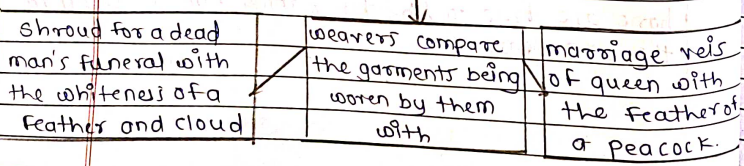 Shroud for a dead
man's funeral with
the whiteness of a
feather and cloud
weavers compare
the garments being
woren by them
with
marriage veis
of queen with
the feather of
a peacock.